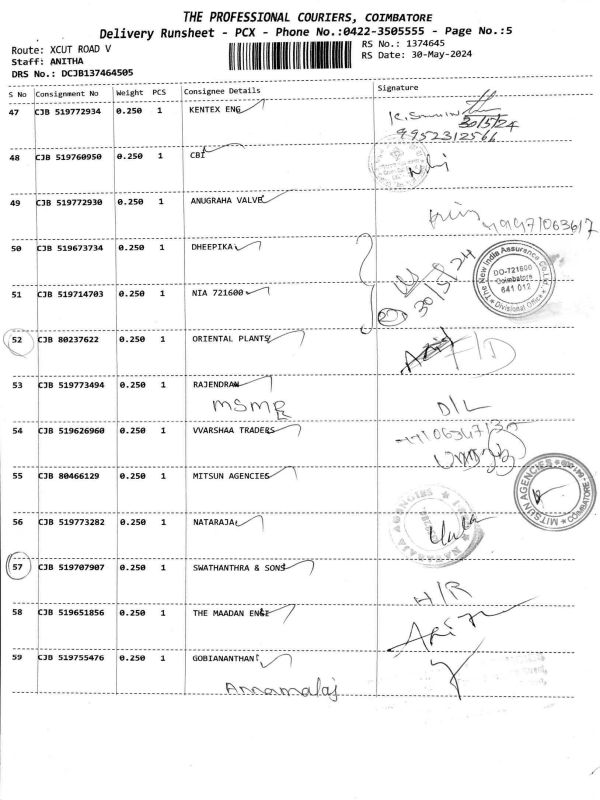 THE PROFESSIONAL COURIERS, COIMBATORE
Delivery Runsheet - PCX - Phone No.:0422-3505555 - Page No.:5
Route: XCUT ROAD V
Staff: ANITHA
DRS No.: DCJB137464505
RS No.: 1374645
RS Date: 30-May-2024
S No Consignment No Weight PCS Consignee Details Signature
47 CJB 519772934 0.250 1 KENTEX ENG
30/5/24
9952312566
48 CJB 519760950 0.250 1 CBI
49 CJB 519772930 0.250 1 ANUGRAHA VALVE
50 CJB 519673734 0.250 1 DHEEPIKA
30/5/24
The New India Assurance Co. Ltd
DO-721600
Coimbatore
641 012
Divisional Office
51 CJB 519714703 0.250 1 NIA 721600
52 CJB 80237622 0.250 1 ORIENTAL PLANTS
53 CJB 519773494 0.250 1 RAJENDRAN
MSME
D/L
54 CJB 519626960 0.250 1 VVARSHAA TRADERS
55 CJB 80466129 0.250 1 MITSUN AGENCIES
MITSUN AGENCIES
COIMBATORE
56 CJB 519773282 0.250 1 NATARAJA
NATARAJA AGENCIES
57 CJB 519707907 0.250 1 SWATHANTHRA & SONS
H/R
58 CJB 519651856 0.250 1 THE MAADAN ENGI
59 CJB 519755476 0.250 1 GOBIANANTHAN
Annamalai